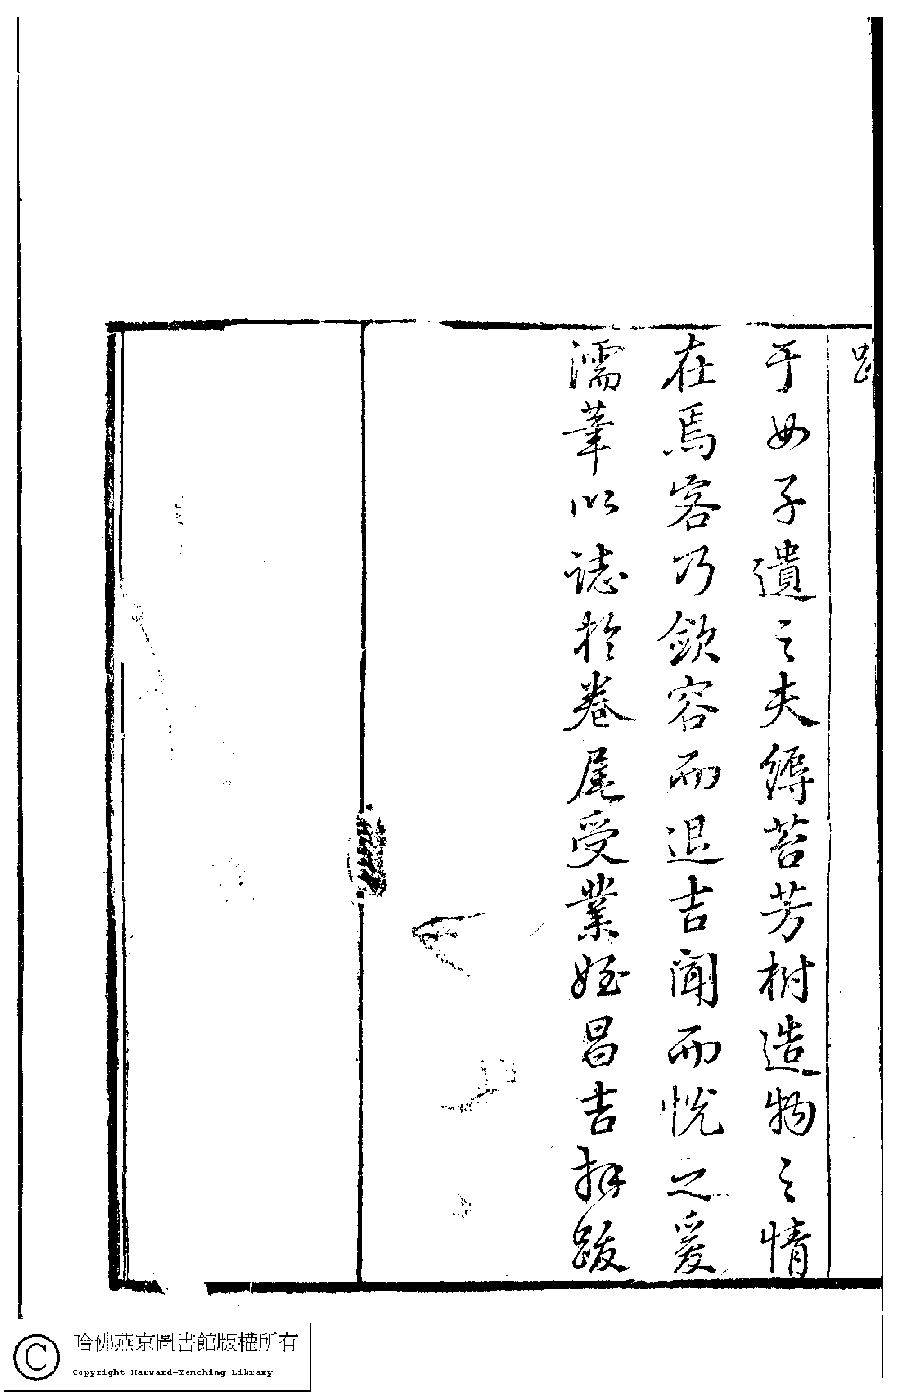 于女子遺之夫縟苔芳樹造物之情
在焉客乃斂容而退吉聞而悅之爰
濡筆以誌於卷尾受業姪昌吉拜跋
哈佛燕京圖書館版權所有
Copyright Harvard-Yenching Library